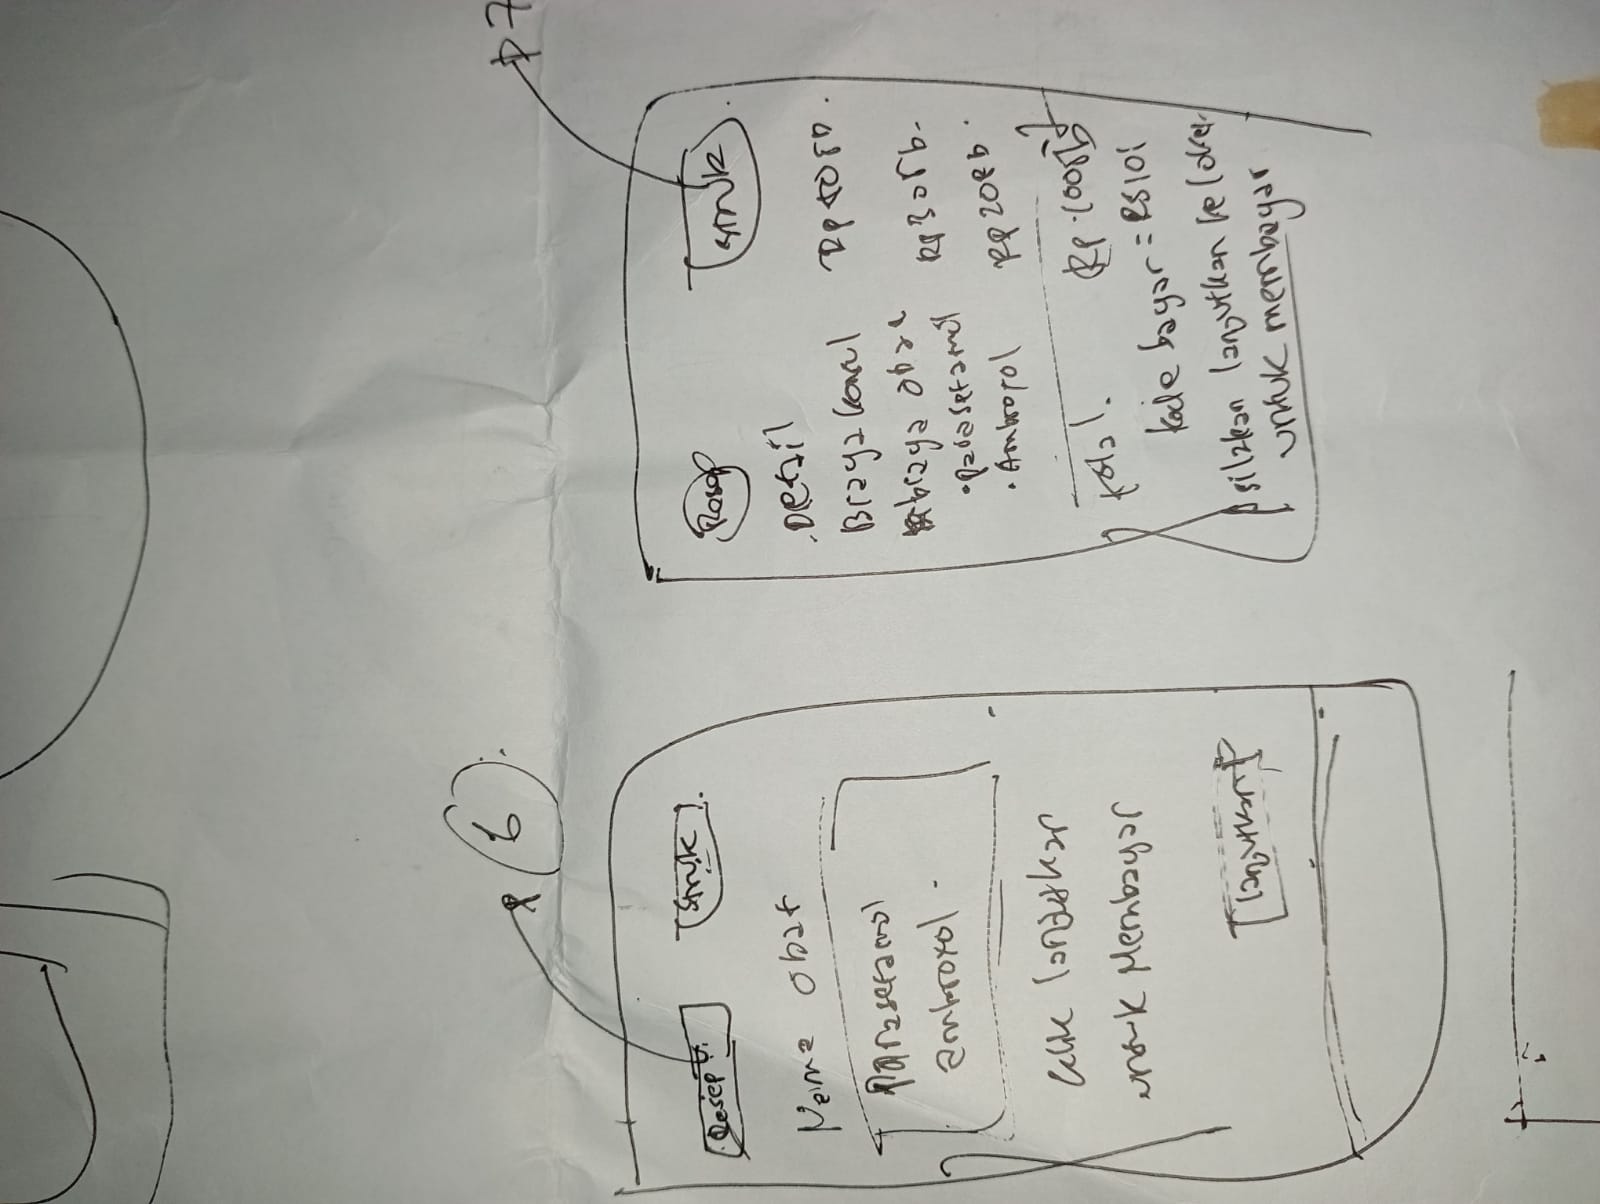 6
Resep
Struk
Nama obat
Parasetamol
ambroxol
klik lanjutkan
untuk Membayar
lanjutkan
7
Resep
struk
Detail
Biaya konsul
biaya obat
• parasetamol
Rp 30rb
• Ambroxol
Rp 20rb
total
Rp. 100rb
kode bayar = RS101
silakan lanjutkan ke loket
untuk membayar